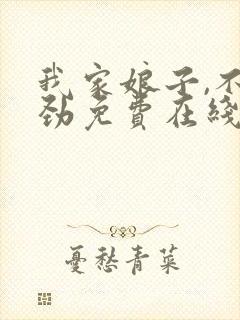 我家娘子,不
劲免費在綫
憂愁青菜